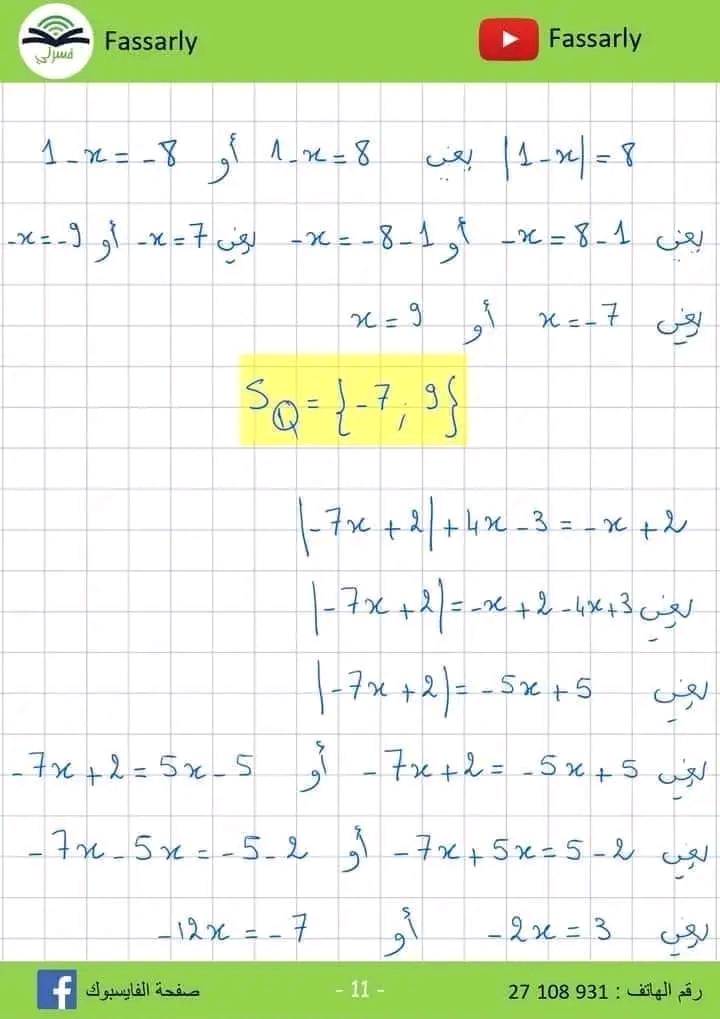 فسرلي Fassarly Fassarly
|1-x|=8 يعني 1-x=8 أو 1-x=-8
يعني -x=8-1 أو -x=-8-1 يعني -x=7 أو -x=-9
يعني x=-7 أو x=9
S_Q={-7;9}
|-7x+2|+4x-3=-x+2
يعني |-7x+2|=-x+2-4x+3
يعني |-7x+2|=-5x+5
يعني -7x+2=-5x+5 أو -7x+2=5x-5
يعني -7x+5x=5-2 أو -7x-5x=-5-2
يعني -2x=3 أو -12x=-7
رقم الهاتف : 27 108 931 - 11 - صفحة الفايسبوك